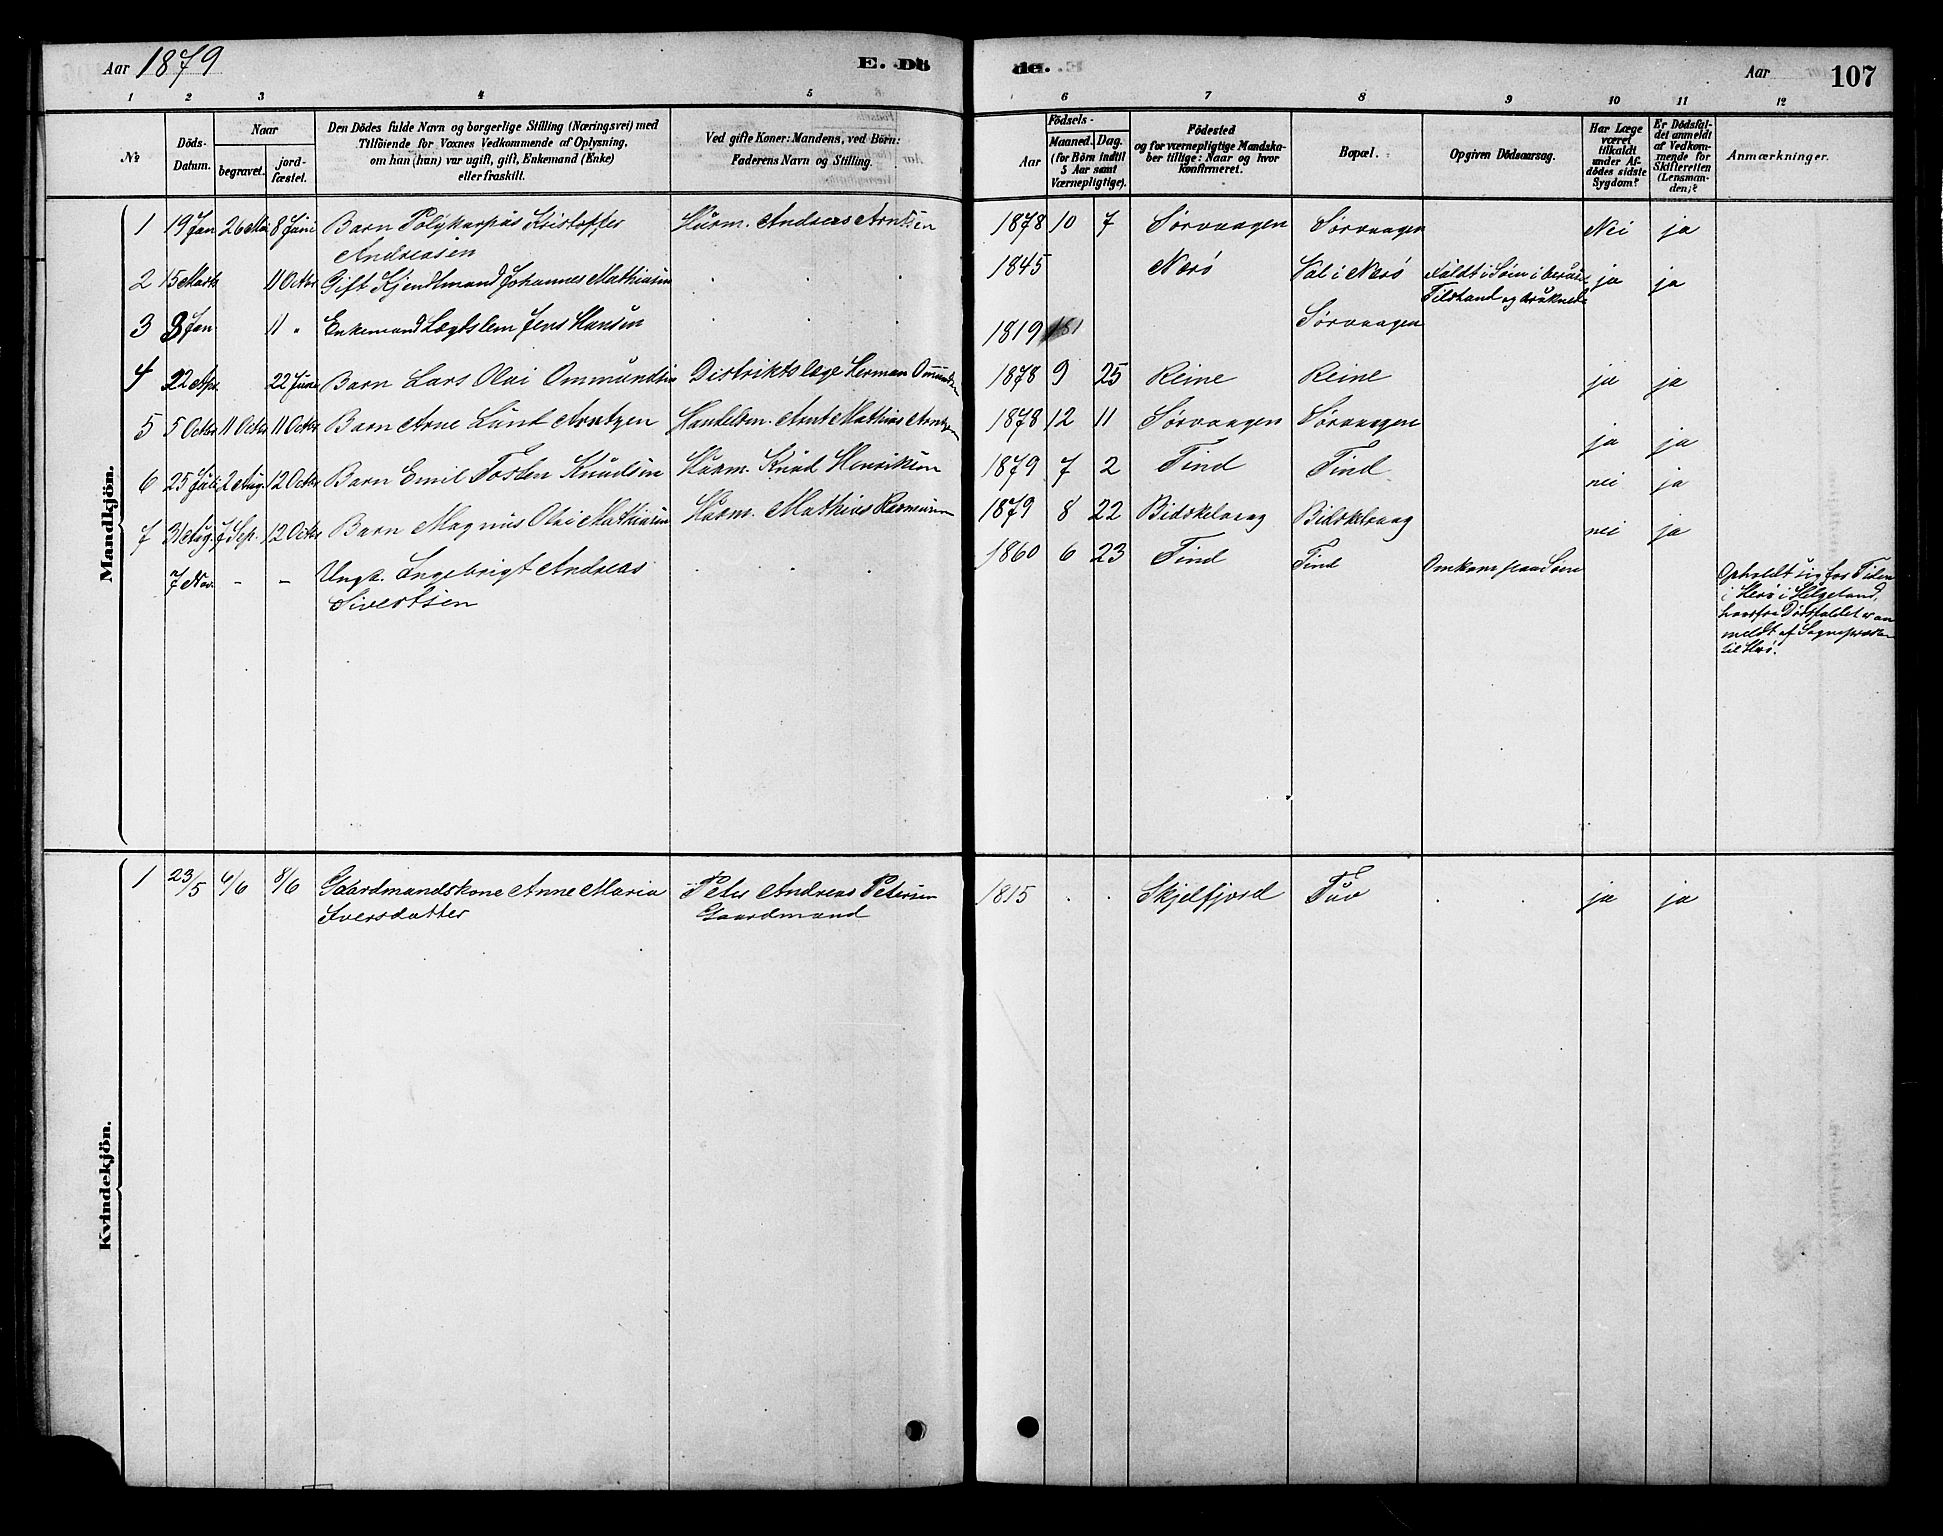 Aar 1879 E. Dö de. Aar 107
1 2 3 4 5 6 7 8 9 10 11 12
№
Döds-Datum.
Naar
begravet.
jord-fæstet.
Den Dödes fulde Navn og borgerlige Stilling (Næringsvei) med
Tilföiende for Voxnes Vedkommende af Oplysning,
om han (hun) var ugift, gift, Enkemand (Enke)
eller fraskilt.
Ved gifte Koner: Mandens, ved Börn:
Faderens Navn og Stilling.
Födsels-
Aar
Maaned. Dag.
(for Börn indtil
5 Aar samt
Værnepligtige).
Födested
og for værnepligtige Mandska-
ber tillige: Naar og hvor
konfirmeret.
Bopæl.
Opgiven Dödsaarsag.
Har Læge
været
tilkaldt
under Af-
dödes sidste
Sygdom?
Er Dödsfal-
det anmeldt
af Vedkom-
mende for
Skifteretten
(Lensman-
den)?
Anmærkninger.
Mandkjön.
1 19 Jan 26 Mai 8 Juni Barn Polykarpus Kristoffer Husm. Andreas Arntsen 1878 10 7 Sørvaagen Sørvaagen Nei ja
Andreasen
2 15 Marts 11 Octbr Gift Johannes Mathiasen 1845 Nærø Val i Nærø Faldt i Søen i beruset ja ja
Tilstand og druknede
3 3 Jan 11 " Enkemand Lægdslem Jens Hansen 1819 Sørvaagen
4 22 Apr 22 Juni Barn Lars Olai Ommundsen Distriktslæge Herman Ommundsen 1878 9 25 Reine Reine ja ja
5 5 Octbr 11 Octbr 11 Octbr Barn Arne Lund Arntzen Handelsm. Arnt Mathias Arntzen 1878 12 11 Sørvaagen Sørvaagen ja ja
6 25 Juli 2 Aug. 12 Octbr Barn Emil Torsten Knudsen Husm. Knud Henriksen 1879 7 2 Tind Tind nei ja
7 31 Aug. 7 Sep. 12 Octbr Barn Magnus Olai Mathiasen Husm. Mathias 1879 8 22 Bidskelvaag Bidskelvaag nei ja
7 Nov. - - Ungk. Ingebrigt Andreas 1860 6 23 Tind Tind Omkom paa Søen
Sivertsen
Opholdt sig for Tiden
i Herø i Helgeland,
hvorfra Dødsfaldet er an
meldt af Sognepræsten
til Herø.
Kvindekjön.
1 23/5 6/6 8/6 Gaardmandskone Anne Maria Peter Andreas Petersen 1815 Skjelfjord Tuv ja ja
Iversdatter Gaardmand